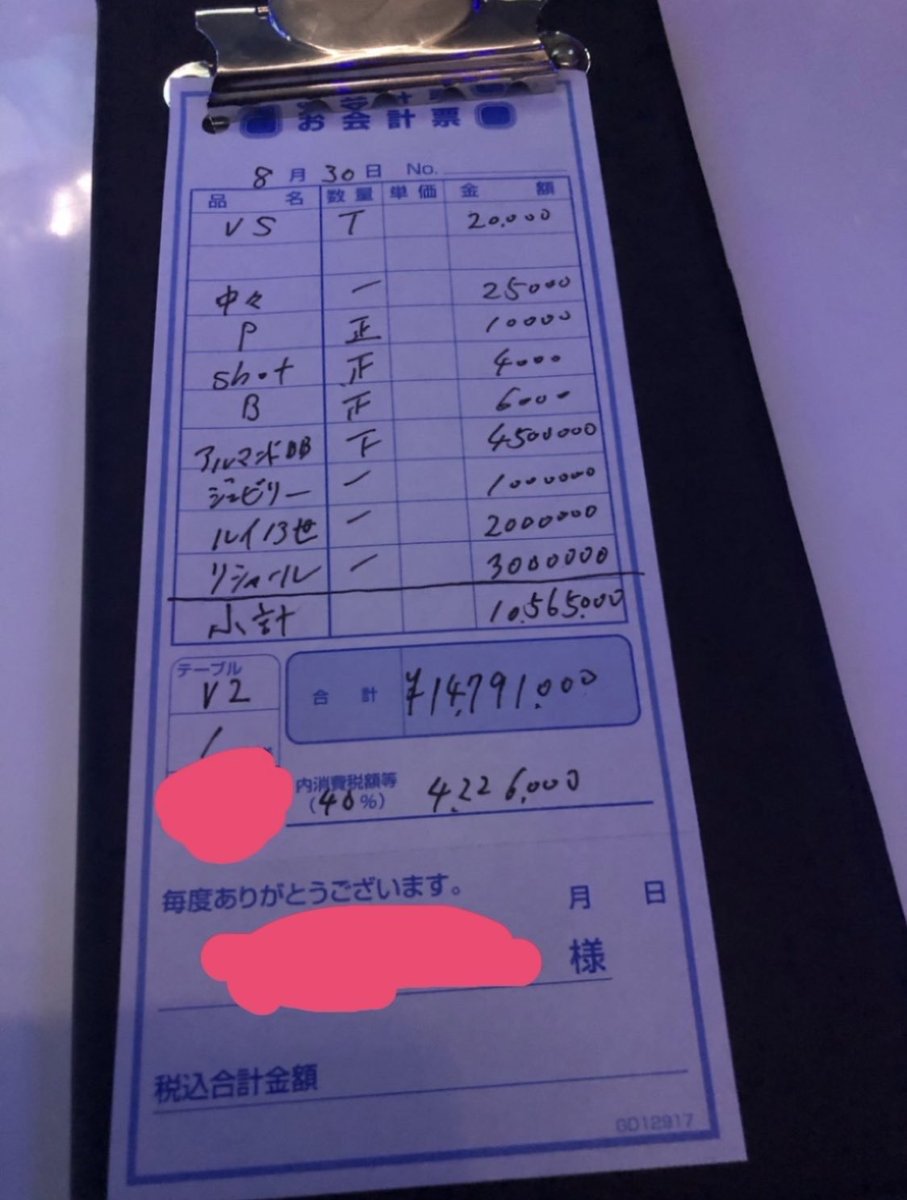 お会計票
8月30日 No.
品名 数量 単価 金額
VS T 20.000
中々 一 25000
P 正 10000
shot 正 4000
B 正 6000
アルマンドBB 下 4500000
ジュビリー 一 1000000
ルイ13世 一 2000000
リシャール 一 3000000
小計 10.565.000
テーブル
V2
合計 ¥14.791.000
内消費税額等
(40%) 4.226.000
毎度ありがとうございます。 月 日
様
税込合計金額
GD12917